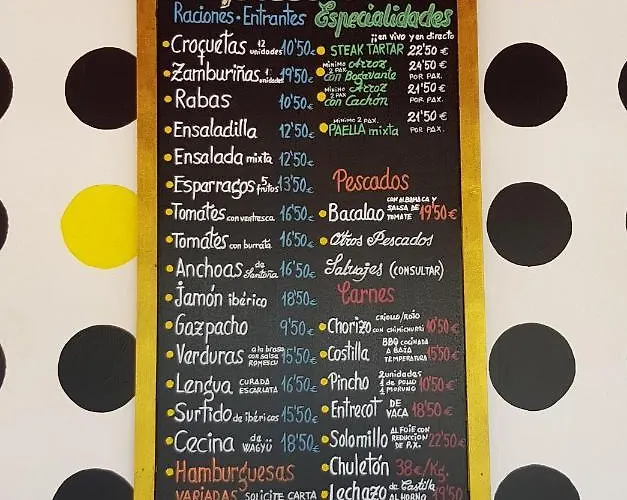 Raciones · Entrantes
Croquetas 12 unidades 10'50€
Zamburiñas unidades 19'50€
Rabas 10'50€
Ensaladilla 12'50€
Ensalada mixta 12'50€
Esparragos 5 frutos 13'50€
Tomates con ventresca 16'50€
Tomates con burrata 16'50€
Anchoas de Santoña 16'50€
Jamón ibérico 18'50€
Gazpacho 9'50€
Verduras a la brasa con salsa ROMESCU 15'50€
Lengua CURADA ESCARLATA 16'50€
Surtido de ibéricos 15'50€
Cecina de WAGYÜ 18'50€
Hamburguesas
VARIADAS SOLICITE CARTA
Especialidades
¡¡en vivo y en directo
STEAK TARTAR 22'50€
MINIMO 2 PAX. Arroz con Bogavante 24'50€ POR PAX.
MINIMO 2 PAX Arroz con Cachón 21'50€ POR PAX.
MINIMO 2 PAX.
PAELLA mixta 21'50€ POR PAX.
Pescados
Bacalao CON ALBAHACA Y SALSA DE TOMATE 19'50€
Otros Pescados
Salvajes (CONSULTAR)
Carnes
Chorizo CRIOLLO/ROJO CON CHIMICHURRI 10'50€
Costilla BBQ COCINADA A BAJA TEMPERATURA 15'50€
Pincho 2 unidades 1 de POLLO 1 MORUNO 10'50€
Entrecot DE VACA 18'50€
Solomillo AL FOIE CON REDUCCION DE P.X. 22'50€
Chuletón 38€/Kg.
Lechazo de Castilla AL HORNO 19'50€